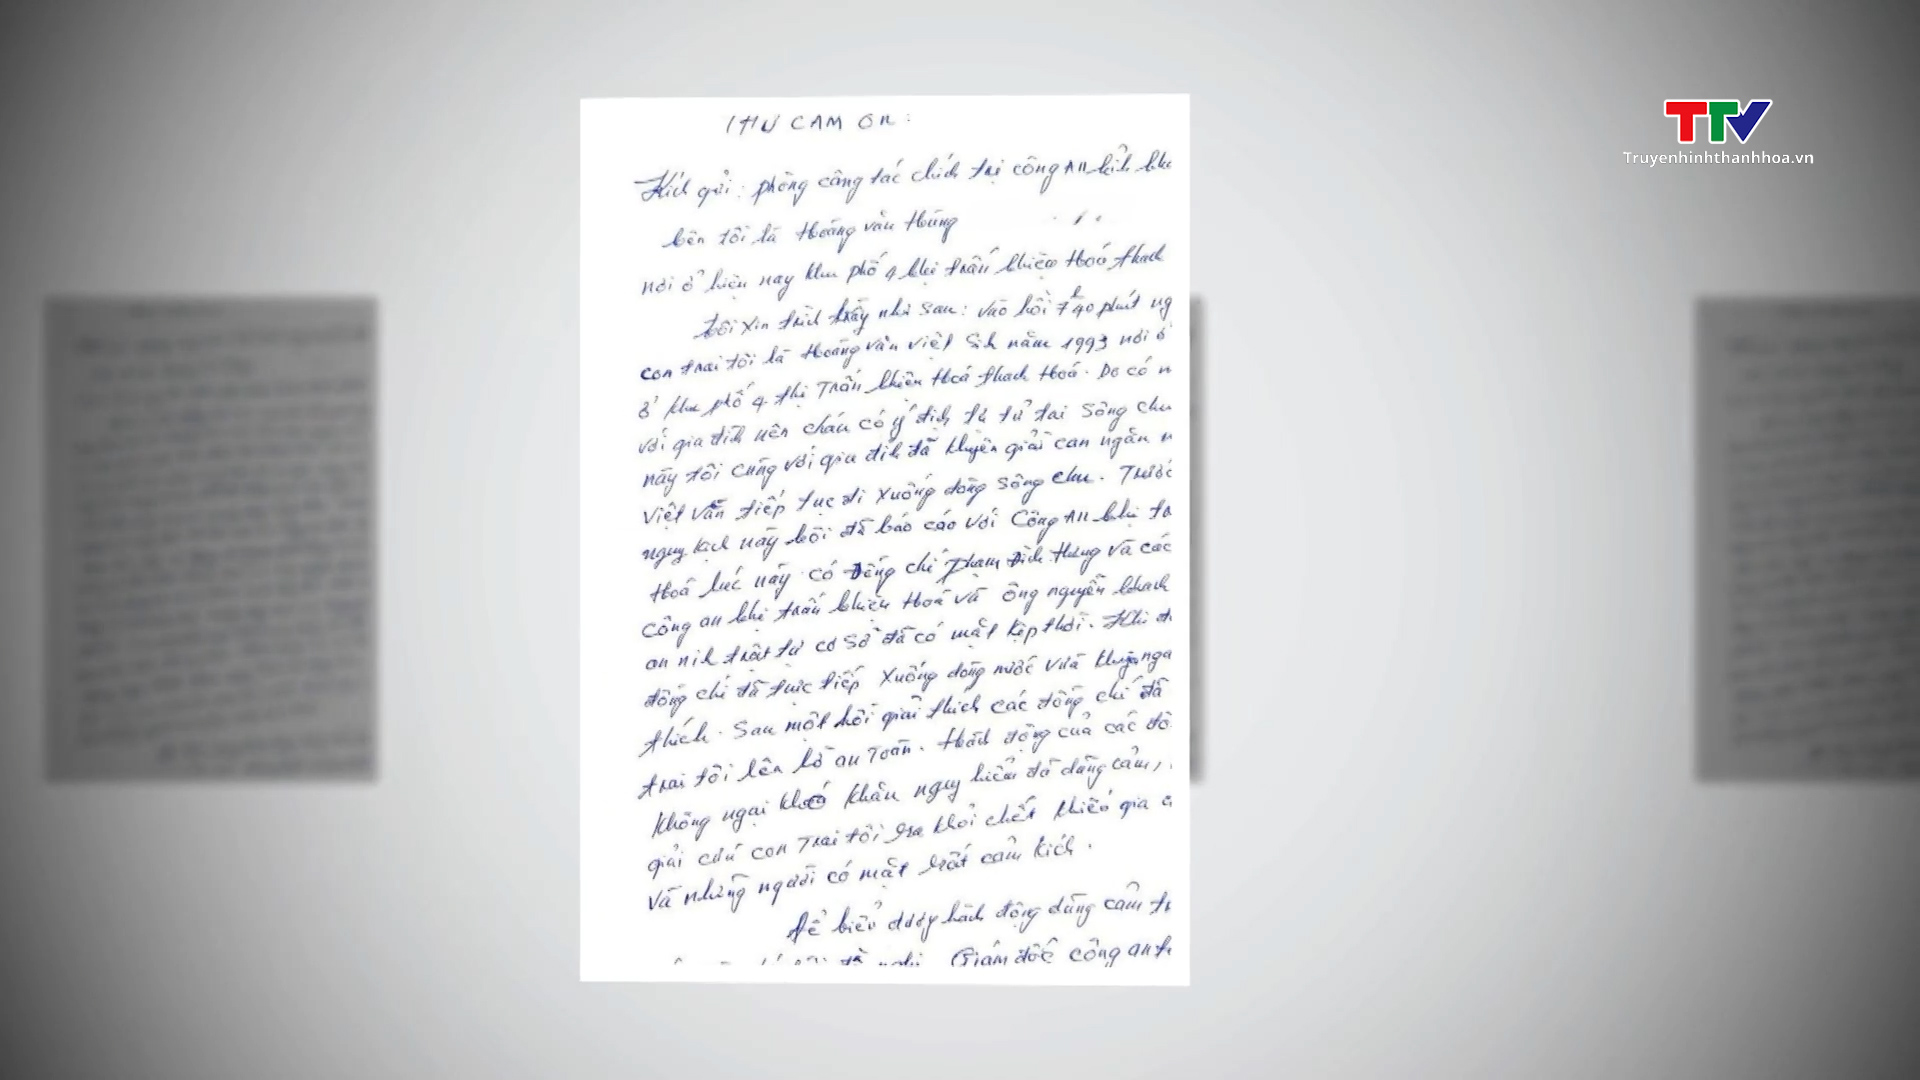 TTV
Truyenhinhthanhhoa.vn
THƯ CAM ƠN:
Kích gửi: phòng công tác chích trị công An
tên tôi là Hoàng văn Hùng
nơi ở hiện nay khu phố 4 thị trấn thiệu Hoá
tôi xin trích trầy như sau: vào hồi 7h40 phút ng
con trai tôi là Hoàng văn việt Sih năm 1993 nơi ở
ở khu phố 4 thị Trấn thiệu Hoá thach Hoá. Do có m
với gia đìh nên cháu có ý địh tự tử tai Sông chu
này tôi cùng với gia đìh đã khuyên giải can ngăn n
việt vẫn tiếp tục đi xuống dòng Sông chu. Trước
nguy kịch này tôi đã báo cáo với Công An thị tr
Hoá lúc này có đồng chí phạm Đìh Hùng và các
công an thị trấn thiệu Hoá và ông nguyễn
an nih trật tự cơ Sở đã có mặt kịp thời. Khi đ
đồng chí đã trực tiếp xuống dòng nước vừa
thích. Sau một hồi giải thích các đồng chí đã
trai tôi lên bờ an Toàn. Hành động của các đồ
không ngại khó khăn nguy hiểm đã dũng cảm,
giải cứu con Trai tôi ra khỏi chết khiến gia đ
và những người có mặt rất cảm kích.
Để biểu dương hành động dũng cảm tr
Giám đốc công an t